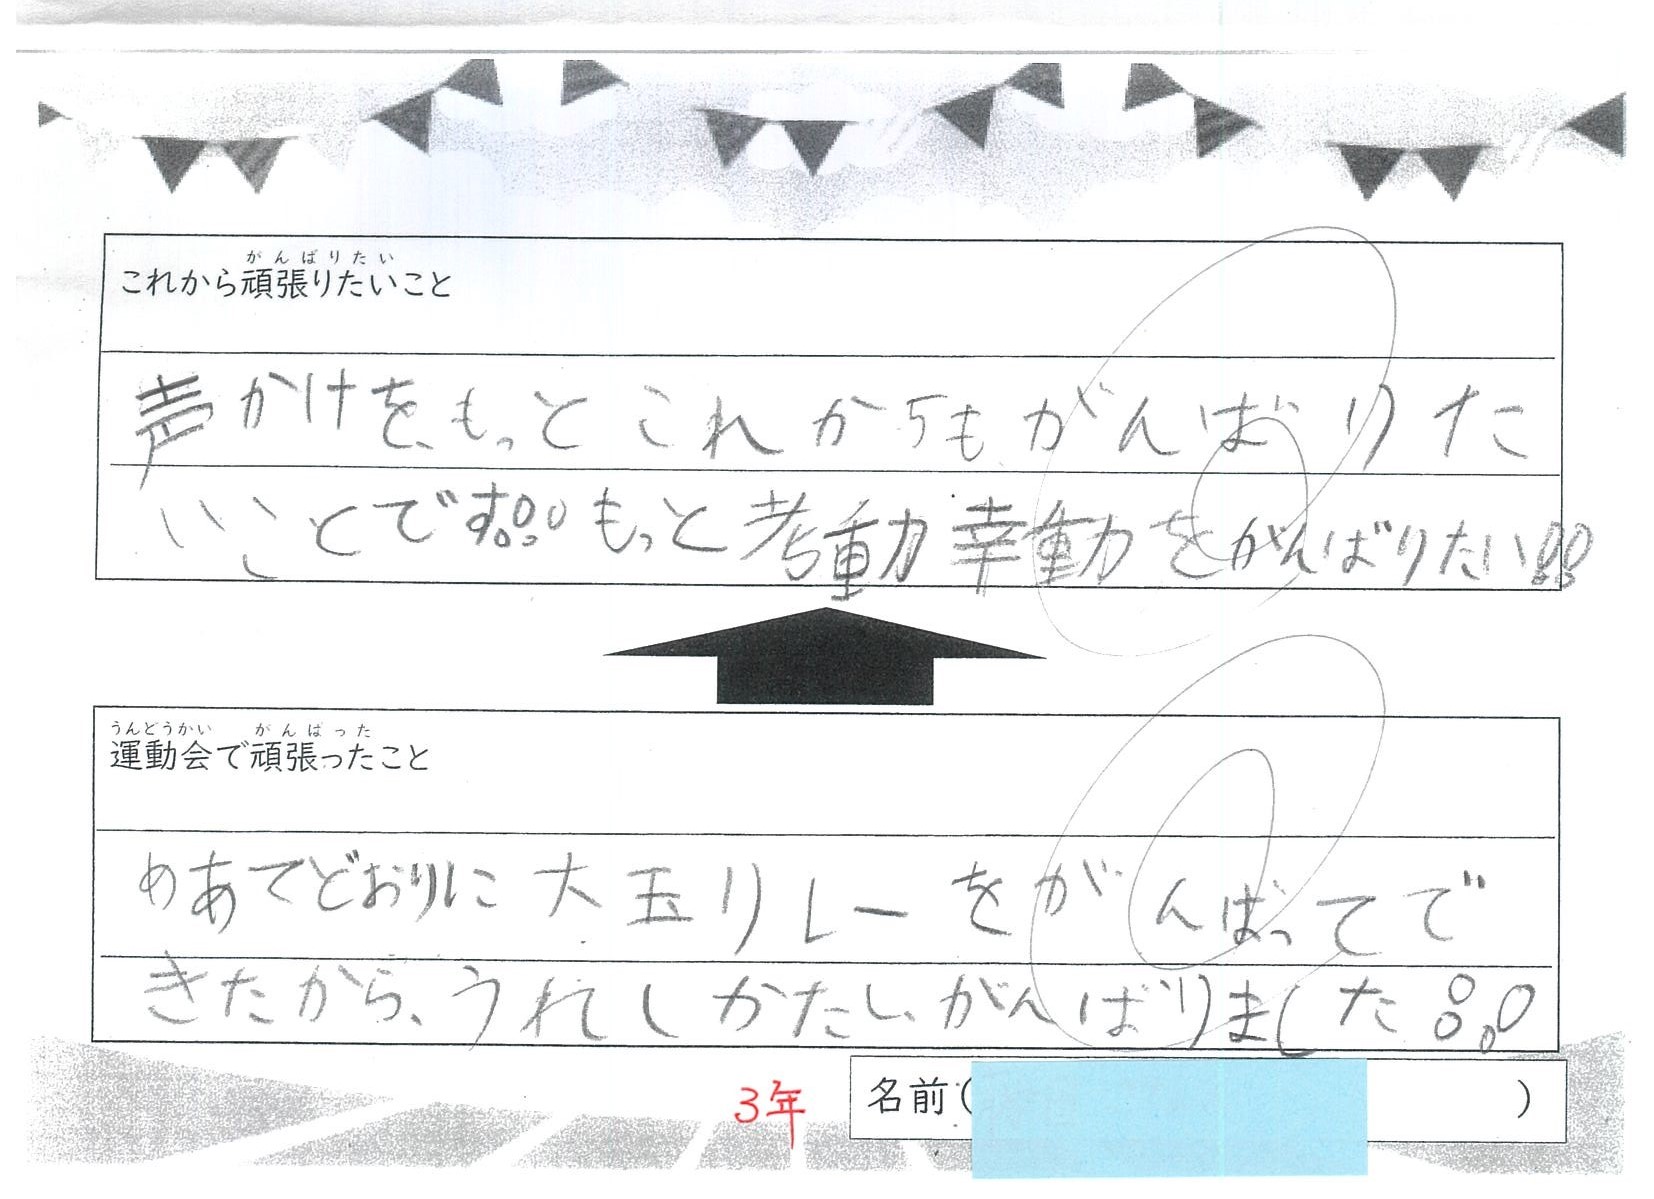 がんばりたい
これから頑張りたいこと
声かけを、もっとこれからもがんばりた
いことです!!もっと考動幸動をがんばりたい!!
うんどうかい がんばった
運動会で頑張ったこと
めあてどおりに大玉リレーをがんばってで
きたから、うれしかたし、がんばりました!!
3年
名前( )